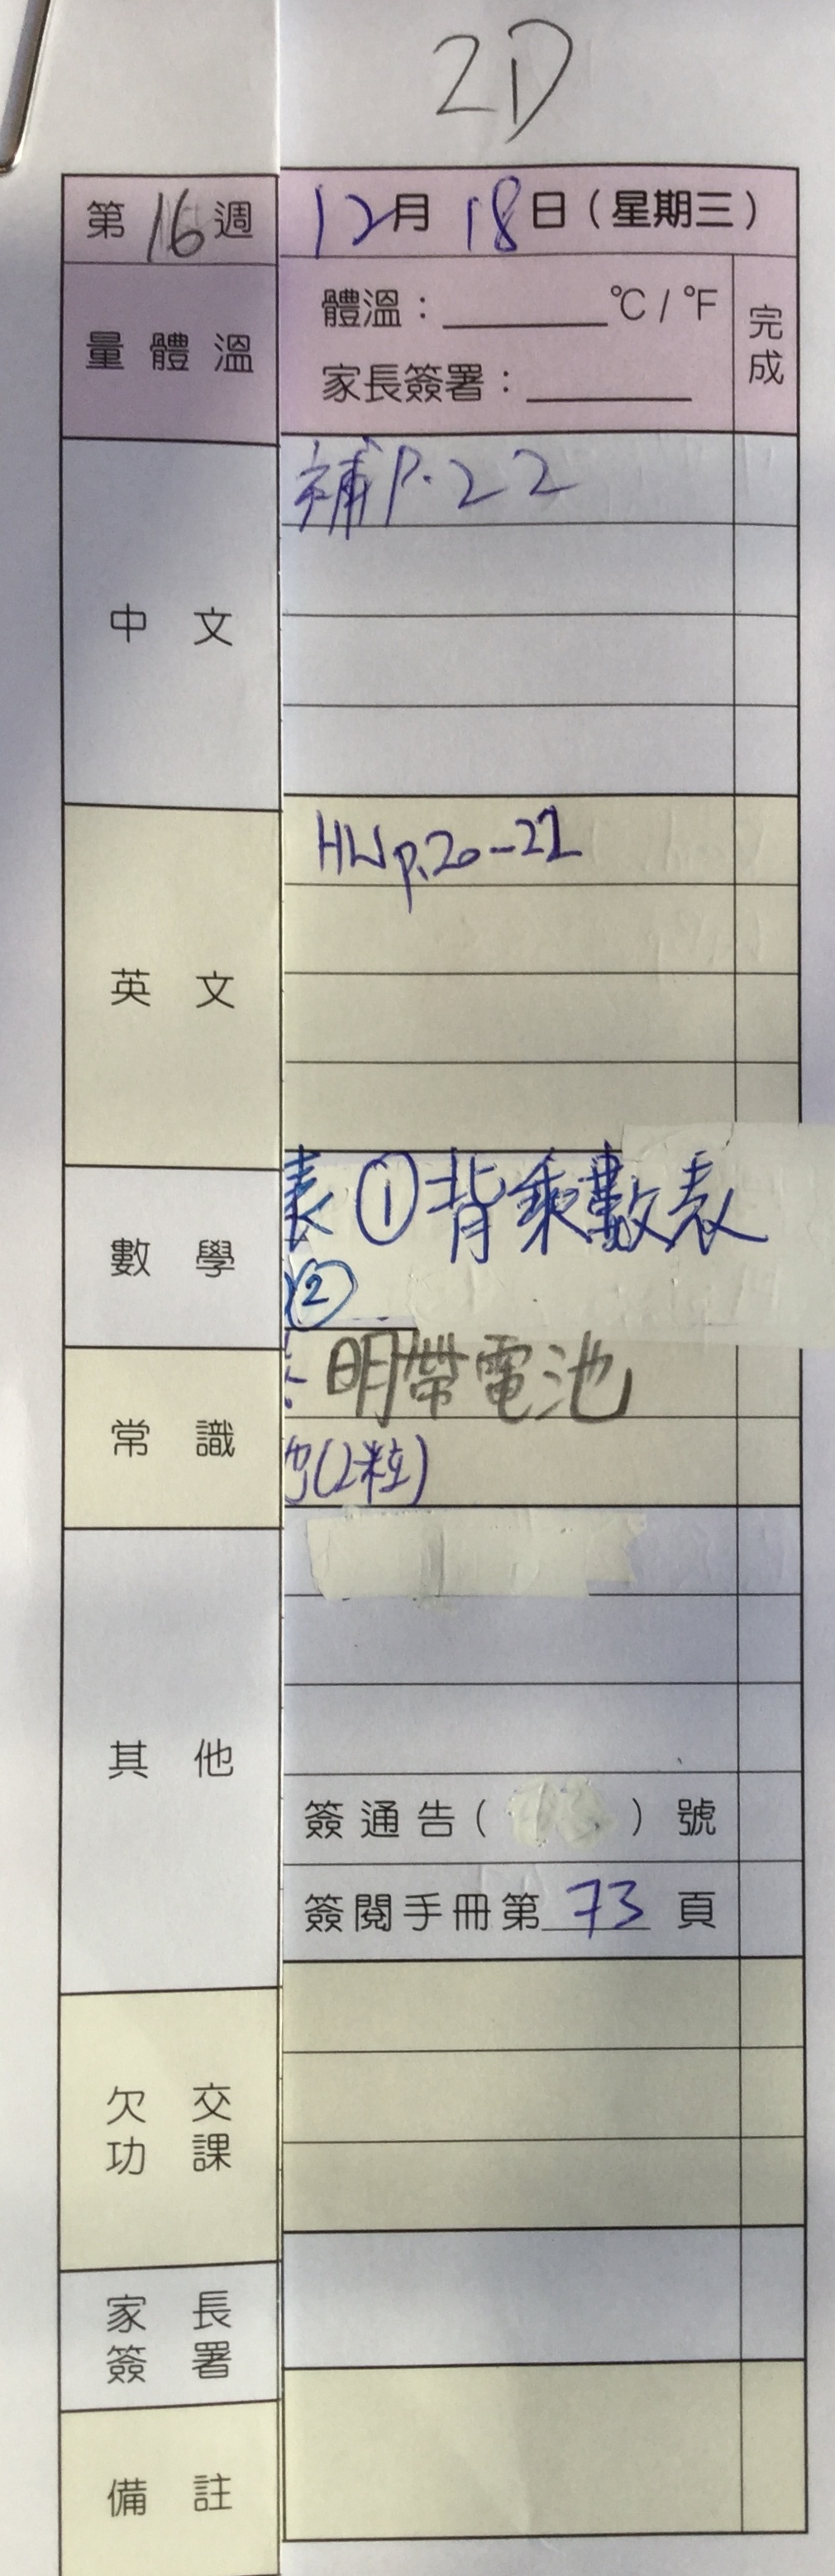 2D
第16週 12月18日（星期三）
量體溫 體溫：______℃/℉ 完成
家長簽署：______
中文 補P.22
英文 HW p.20-22
數學 表①背乘數表
②
常識 明帶電池
(2粒)
其他
簽通告（ ）號
簽閱手冊第73頁
欠交功課
家長簽署
備註